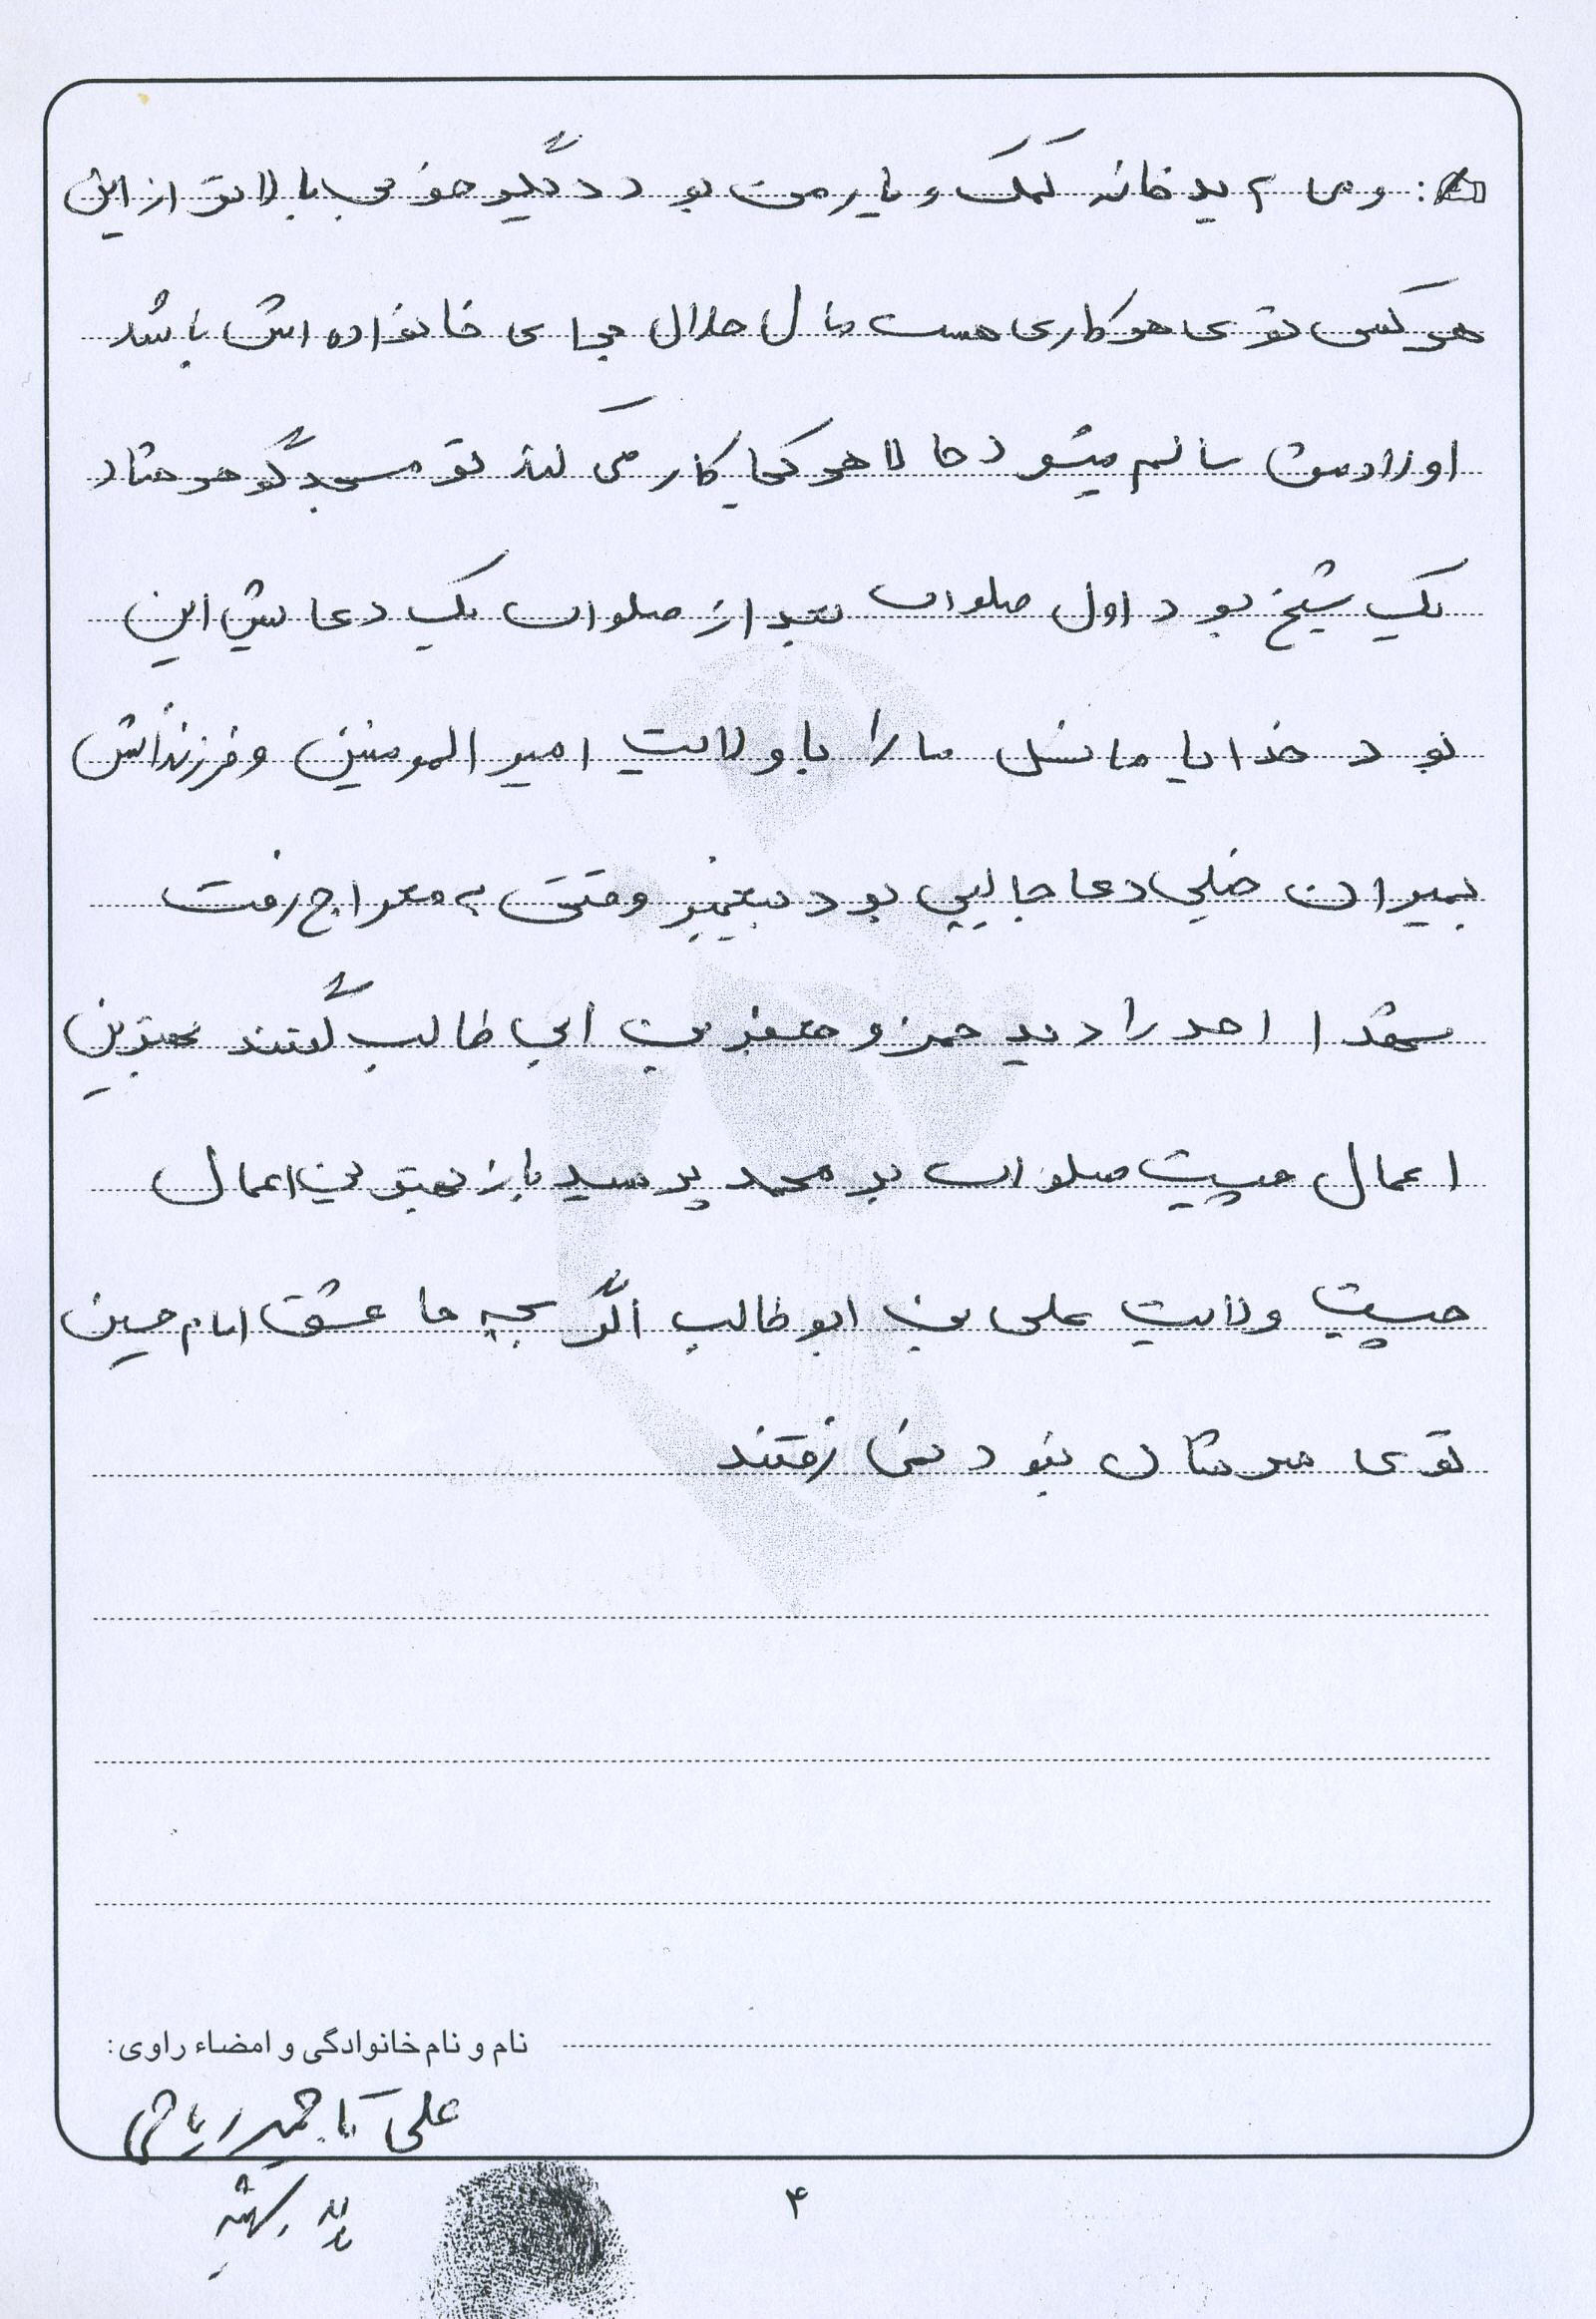 و می آمد خانه کمک و یار من بود دیگر خوبی بابالاتر از این
هر کسی توی هر کاری هست مال حلال برای خانواده اش باشد
اولادش سالم میشود حالا هر کجا کار می کند تو مسجد گوهرشاد
یک شیخ بود اول صلوات بعد از صلوات یک دعایش این
بود خدایا ما نسل ما را با ولایت امیر المومنین و فرزندانش
بمیران خیلی دعا جالبی بود پیغمبر وقتی به معراج رفت
شهدا احد را دید حمزه و جعفر بن ابی طالب گفتند بهترین
اعمال چیست صلوات بر محمد پرسید باز بهترین اعمال
چیست ولایت علی بن ابو طالب اگر بچه ها عشق امام حسین
توی سرشان نبود نمی رفتند
نام و نام خانوادگی و امضاء راوی:
علی
۴